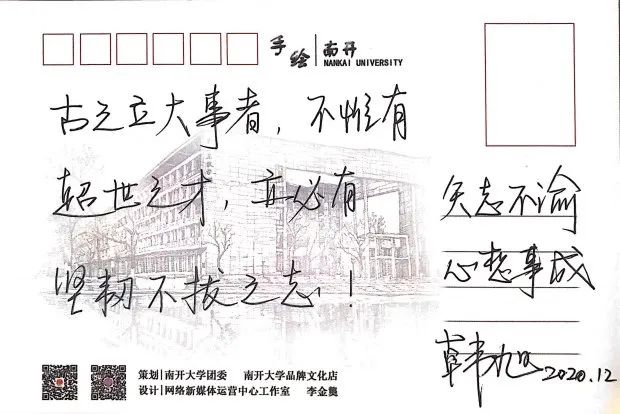 手绘 南开
NANKAI UNIVERSITY
古之立大事者，不惟有
超世之才，亦必有
坚韧不拔之志！
矢志不渝
心想事成
韩旭 2020.12
策划 南开大学团委 南开大学品牌文化店
设计 网络新媒体运营中心工作室 李金龑